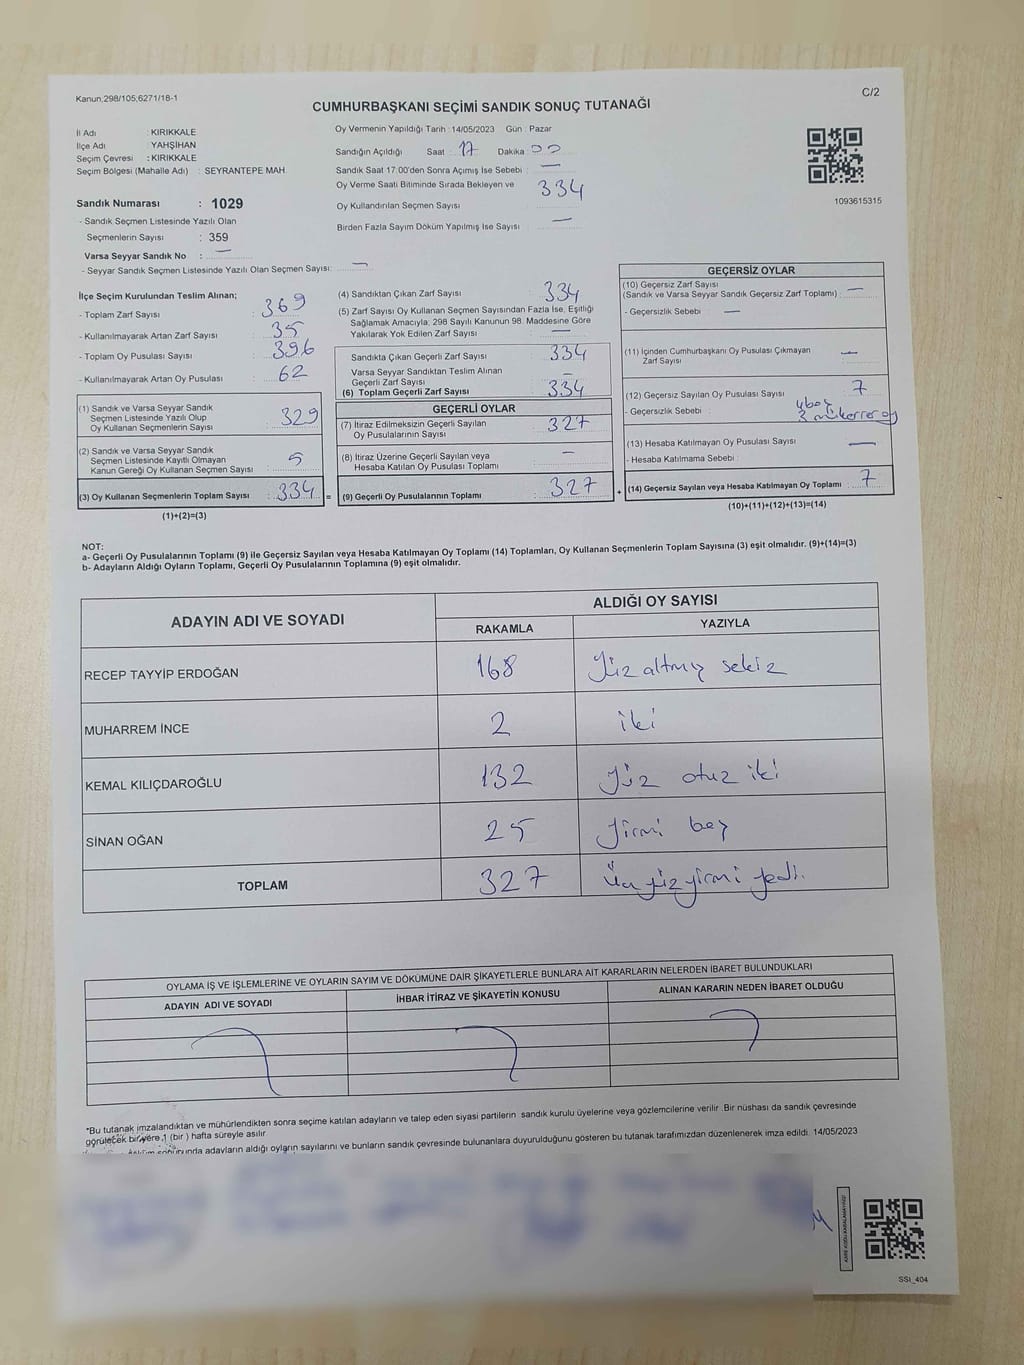 Kanun,298/105;6271/18-1
C/2
CUMHURBAŞKANI SEÇİMİ SANDIK SONUÇ TUTANAĞI
İl Adı : KIRIKKALE
İlçe Adı : YAHŞİHAN
Seçim Çevresi : KIRIKKALE
Seçim Bölgesi (Mahalle Adı) : SEYRANTEPE MAH.
Oy Vermenin Yapıldığı Tarih : 14/05/2023 Gün : Pazar
Sandığın Açıldığı Saat : 17 Dakika : 00
Sandık Saat 17:00'den Sonra Açımış İse Sebebi : —
Oy Verme Saati Bitiminde Sırada Bekleyen ve
Oy Kullandırılan Seçmen Sayısı : 334
Birden Fazla Sayım Döküm Yapılmış İse Sayısı : —
1093615315
Sandık Numarası : 1029
- Sandık Seçmen Listesinde Yazılı Olan
Seçmenlerin Sayısı : 359
Varsa Seyyar Sandık No : —
- Seyyar Sandık Seçmen Listesinde Yazılı Olan Seçmen Sayısı: —
İlçe Seçim Kurulundan Teslim Alınan;
- Toplam Zarf Sayısı : 369
- Kullanılmayarak Artan Zarf Sayısı : 35
- Toplam Oy Pusulası Sayısı : 396
- Kullanılmayarak Artan Oy Pusulası : 62
(1) Sandık ve Varsa Seyyar Sandık
Seçmen Listesinde Yazılı Olup
Oy Kullanan Seçmenlerin Sayısı : 329
(2) Sandık ve Varsa Seyyar Sandık
Seçmen Listesinde Kayıtlı Olmayan
Kanun Gereği Oy Kullanan Seçmen Sayısı : 5
(3) Oy Kullanan Seçmenlerin Toplam Sayısı : 334 =
(1)+(2)=(3)
(4) Sandıktan Çıkan Zarf Sayısı : 334
(5) Zarf Sayısı Oy Kullanan Seçmen Sayısından Fazla İse, Eşitliği
Sağlamak Amacıyla; 298 Sayılı Kanunun 98. Maddesine Göre
Yakılarak Yok Edilen Zarf Sayısı : —
Sandıkta Çıkan Geçerli Zarf Sayısı : 334
Varsa Seyyar Sandıktan Teslim Alınan
Geçerli Zarf Sayısı : —
(6) Toplam Geçerli Zarf Sayısı : 334
GEÇERLİ OYLAR
(7) İtiraz Edilmeksizin Geçerli Sayılan
Oy Pusulalarının Sayısı : 327
(8) İtiraz Üzerine Geçerli Sayılan veya
Hesaba Katılan Oy Pusulası Toplamı : —
(9) Geçerli Oy Pusulalarının Toplamı : 327 +
GEÇERSİZ OYLAR
(10) Geçersiz Zarf Sayısı
(Sandık ve Varsa Seyyar Sandık Geçersiz Zarf Toplamı) : —
- Geçersizlik Sebebi : —
(11) İçinden Cumhurbaşkanı Oy Pusulası Çıkmayan
Zarf Sayısı : —
(12) Geçersiz Sayılan Oy Pusulası Sayısı : 7
- Geçersizlik Sebebi : 4 boş
3 mükerrer oy
(13) Hesaba Katılmayan Oy Pusulası Sayısı : —
- Hesaba Katılmama Sebebi :
(14) Geçersiz Sayılan veya Hesaba Katılmayan Oy Toplamı : 7
(10)+(11)+(12)+(13)=(14)
NOT:
a- Geçerli Oy Pusulalarının Toplamı (9) ile Geçersiz Sayılan veya Hesaba Katılmayan Oy Toplamı (14) Toplamları, Oy Kullanan Seçmenlerin Toplam Sayısına (3) eşit olmalıdır. (9)+(14)=(3)
b- Adayların Aldığı Oyların Toplamı, Geçerli Oy Pusulalarının Toplamına (9) eşit olmalıdır.
ADAYIN ADI VE SOYADI ALDIĞI OY SAYISI
RAKAMLA YAZIYLA
RECEP TAYYİP ERDOĞAN 168 Yüz altmış sekiz
MUHARREM İNCE 2 iki
KEMAL KILIÇDAROĞLU 132 Yüz otuz iki
SİNAN OĞAN 25 Yirmi beş
TOPLAM 327 Üç yüz yirmi yedi.
OYLAMA İŞ VE İŞLEMLERİNE VE OYLARIN SAYIM VE DÖKÜMÜNE DAİR ŞİKAYETLERLE BUNLARA AİT KARARLARIN NELERDEN İBARET BULUNDUKLARI
ADAYIN ADI VE SOYADI İHBAR İTİRAZ VE ŞİKAYETİN KONUSU ALINAN KARARIN NEDEN İBARET OLDUĞU
*Bu tutanak imzalandıktan ve mühürlendikten sonra seçime katılan adayların ve talep eden siyasi partilerin sandık kurulu üyelerine veya gözlemcilerine verilir .Bir nüshası da sandık çevresinde
görülecek bir yere 1 (bir ) hafta süreyle asılır.
adayların aldığı oyların sayılarını ve bunların sandık çevresinde bulunanlara duyurulduğunu gösteren bu tutanak tarafımızdan düzenlenerek imza edildi. 14/05/2023
SSI_404